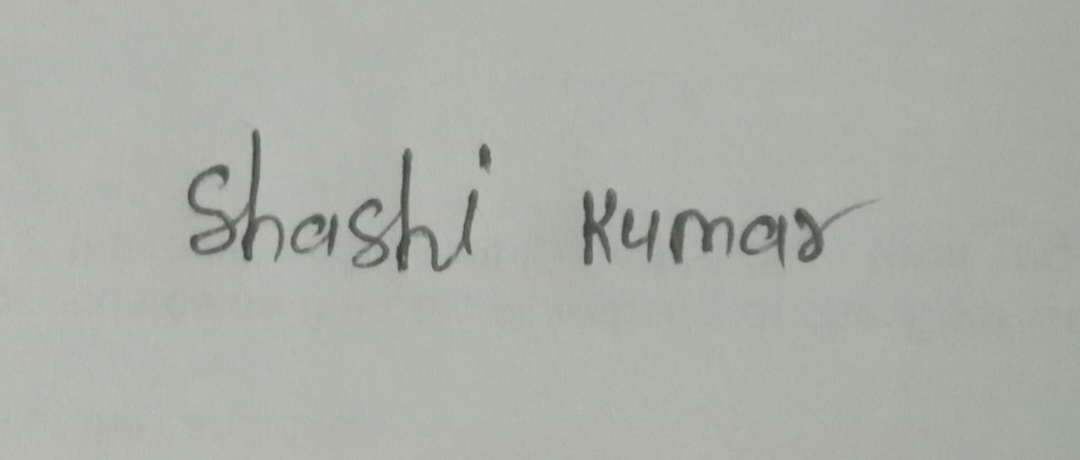 Shashi Kumar